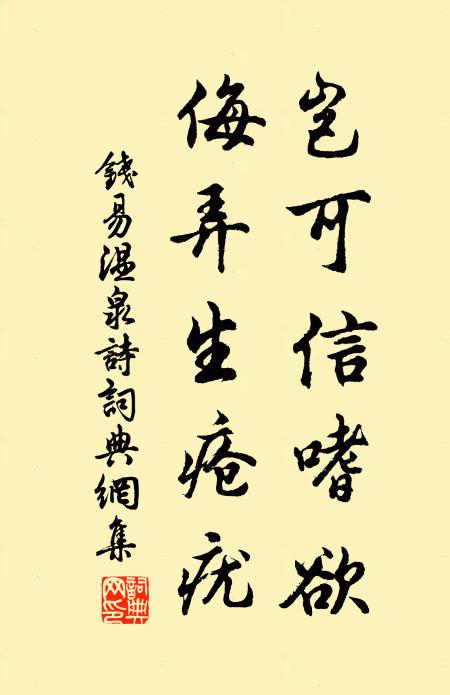 豈可信嗜欲
侮弄生瘡疣
錢易溫泉詩詞典網集
詞典
网印